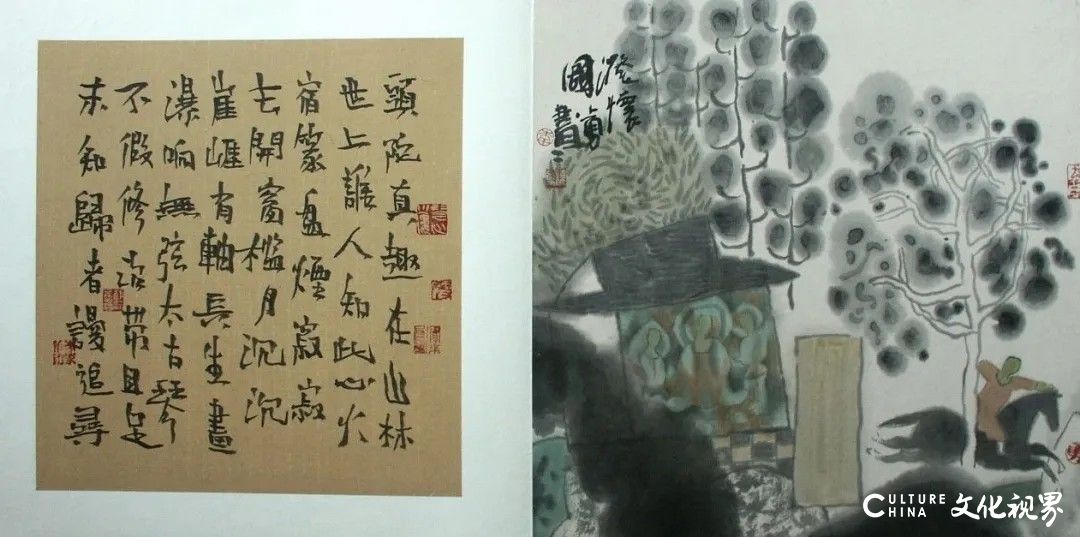 頭陀真趣在山林
世上誰人知此心火
宿篆盘煙寂寂
云開窗檻月沉沉
崖崕有軸長生畫
瀑响無弦太古琴
不假修治常具足
未知歸者謾追尋
澄懷
國勇畫
CULTURE CHINA 文化视界